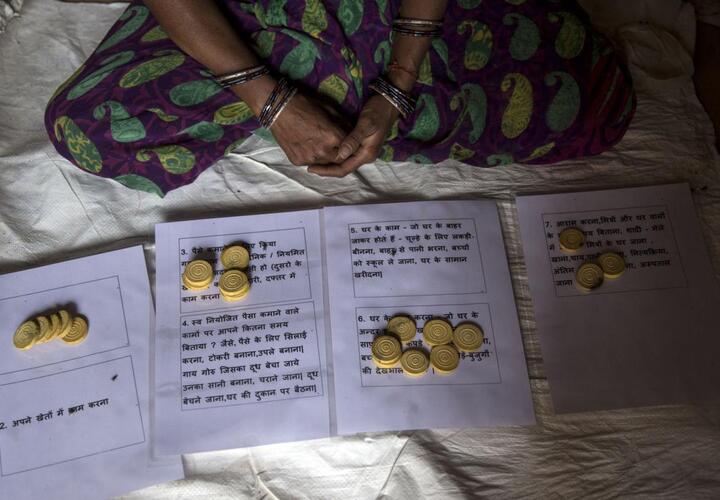 2. अपने खेतों में काम करना
3. पैसे कमाने
दैनिक / नियमित
ही हो (दूसरो के
दफ्तर में
काम करना
4. स्व नियोजित पैसा कमाने वाले
कामों पर आपने कितना समय
बिताया ? जैसे, पैसे के लिए सिलाई
करना, टोकरी बनाना,उपले बनाना|
गाय गोरु जिसका दूध बेचा जाये
उनका सानी बनाना, चराने जाना| दूध
बेचने जाना,घर की दुकान पर बैठना|
5. घर के काम - जो घर के बाहर
जाकर होते हैं - चूल्हे के लिए लकड़ी
बीनना, बाहर से पानी भरना, बच्चों
को स्कूल ले जाना, घर के सामान
खरीदना|
6. घर के करना - जो घर के
अन्दर
की देखभाल
7. आराम करना,मित्रों और घर वालों
के बिताना, शादी - मेले
में मित्रों के घर जाना ,
खाना नित्यक्रिया,
अंतिम अस्पताल
जाना